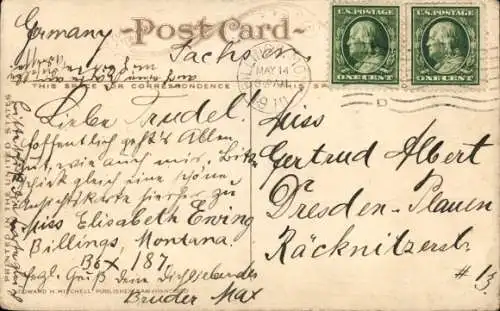 Germany
Post Card
Sachsen
THIS SPACE FOR CORRESPONDENCE
U.S. POSTAGE
ONE CENT
U.S. POSTAGE
ONE CENT
MAY 14
Liebe Trudel!
Hoffentlich geht's Allen
gut, wie auch mir. Bitte
schick gleich eine schöne
Ansichtskarte hierher zu
Miss Elisabeth Ewing
Billings, Montana
Box 187
herzl. Gruß dein Dichliebender
Bruder Max
Miss
Gertrud Albert
Dresden-Plauen
Räcknitzerstr.
# 13.
EDWARD H. MITCHELL, PUBLISHER, SAN FRANCISCO
PRINTED IN THE UNITED STATES